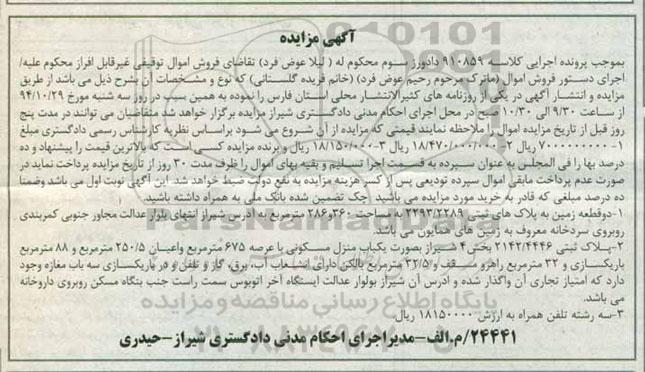 آگهی مزایده
بموجب پرونده اجرایی کلاسه ۹۱۰۸۵۹ دادورز سوم محکوم له ( لیلا عوض فرد) تقاضای فروش اموال توقیفی غیرقابل افراز محکوم علیه/
اجرای دستور فروش اموال (ماترک مرحوم رحیم عوض فرد) (خانم فریده گلستانی) که نوع و مشخصات آن بشرح ذیل می باشد از طریق
مزایده و انتشار آگهی در یکی از روزنامه های کثیرالانتشار محلی استان فارس را نموده به همین سبب در روز سه شنبه مورخ ۹۴/۱۰/۲۹
از ساعت ۹/۳۰ الی ۱۰/۳۰ صبح در محل اجرای احکام مدنی دادگستری شیراز مزایده برگزار خواهد شد متقاضیان می توانند در مدت پنج
روز قبل از تاریخ مزایده اموال را ملاحظه نمایند قیمتی که مزایده از آن شروع می شود براساس نظریه کارشناس رسمی دادگستری مبلغ
۱- ۷۰۰۰۰۰۰۰۰۰ ریال ۲- ۱۸/۴۷۰/۰۰۰/۰۰۰ ریال ۳- ۱۸/۱۵۰/۰۰۰ ریال و برنده مزایده کسی است که بالاترین قیمت را پیشنهاد و ده
درصد بها را فی المجلس به عنوان سپرده به قسمت اجرا تسلیم و بقیه بهای اموال را ظرف مدت ۳۰ روز از تاریخ مزایده پرداخت نماید در
صورت عدم پرداخت مابقی اموال سپرده تودیعی پس از کسر هزینه مزایده به نفع دولت ضبط خواهد شد. این آگهی نوبت اول می باشد وضمنا
ده درصد مبلغی که قادر به خرید مورد مزایده می باشید چک تضمین شده بانک ملی به همراه داشته باشید.
۱-دوقطعه زمین به پلاک های ثبتی ۲۲۹۳/۲۲۸۹ به مساحت ۳۶۰و۲۸۶ مترمربع به آدرس شیراز انتهای بلوار عدالت مجاور جنوبی کمربندی
روبروی سردخانه معروف به زمین های همایون می باشد.
۲-پلاک ثبتی ۲۱۴۲/۴۴۴۶ بخش۴ شیراز بصورت یکباب منزل مسکونی با عرصه ۶۷۵ مترمربع واعیان ۲۵۰/۵ مترمربع و ۸۸ مترمربع
باریکسازی و ۳۲ مترمربع راهرو مسقف و ۳۲/۵ مترمربع بالکن دارای انشعاب آب، برق، گاز و تلفن و در باریکسازی سه باب مغازه وجود
دارد که امتیاز تجاری آن واگذار شده و آدرس آن شیراز بولوار عدالت ایستگاه آخر اتوبوس سمت راست جنب بنگاه مسکن روبروی داروخانه
می باشد.
۳-سه رشته تلفن همراه به ارزش ۱۸۱۵۰۰۰۰ ریال.
۲۴۴۴۱/م.الف-مدیراجرای احکام مدنی دادگستری شیراز-حیدری
پایگاه اطلاع رسانی مناقصه و مزایده
ParsNamadData